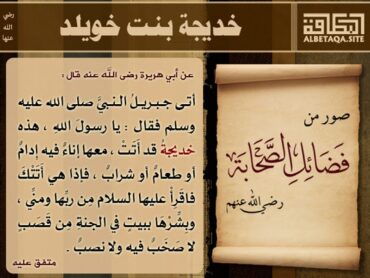 خديجة بنت خويلد
رضي
الله
عنها
البطاقة
ALBETAQA.SITE
عن أبي هريرة رضي الله عنه قال :
أتى جبريلُ النبيَّ صلى الله عليه
وسلم فقال : يا رسولَ اللهِ ، هذه
خديجةُ قد أَتَتْ ، معها إناءٌ فيه إدامٌ
أو طعامٌ أو شرابٌ ، فإذا هي أَتَتْكَ
فاقَرِأْ عليها السلامَ مِن ربِّها ومنِّي ،
وبشِّرْها ببيتٍ في الجنةِ مِن قَصَبٍ
لا صَخَبٌ فيه ولا نصبٌ .
متفق عليه
صور من
فَضَائِلِ الصَّحَابَة
رضي الله عنهم